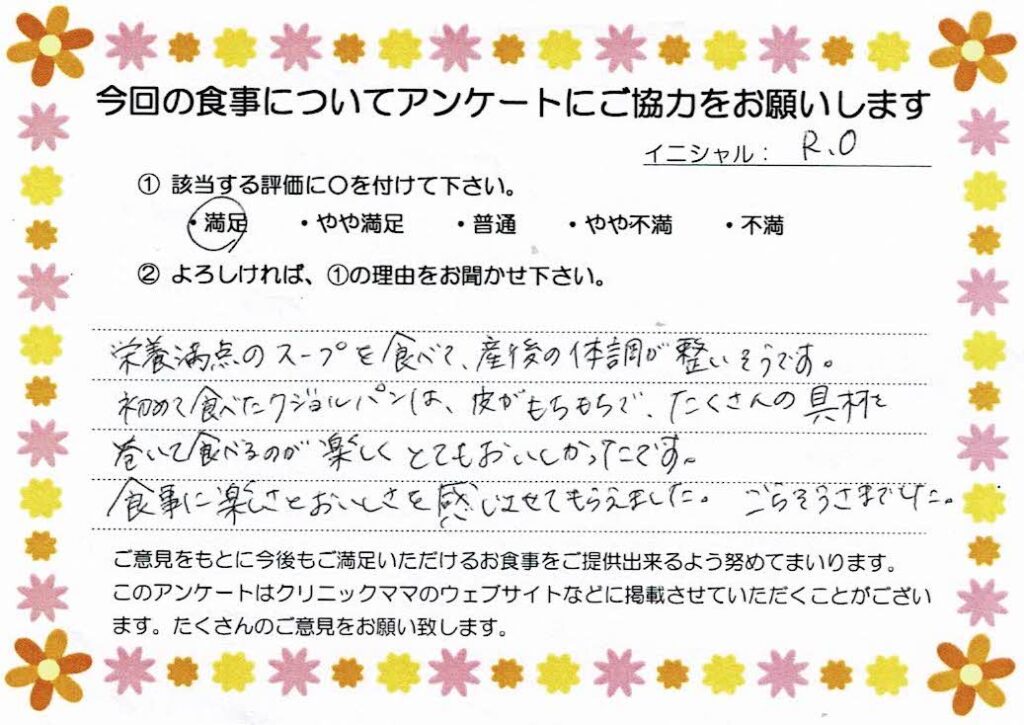 今回の食事についてアンケートにご協力をお願いします
イニシャル： R.O
① 該当する評価に〇を付けて下さい。
・満足 ・やや満足 ・普通 ・やや不満 ・不満
② よろしければ、①の理由をお聞かせ下さい。
栄養満点のスープを食べて、産後の体調が整いそうです。
初めて食べたクジョルパンは、皮がもちもちで、たくさんの具材を
巻いて食べるのが楽しくとてもおいしかったです。
食事に楽しさとおいしさを感じさせてもらえました。 ごちそうさまでした。
ご意見をもとに今後もご満足いただけるお食事をご提供出来るよう努めてまいります。
このアンケートはクリニックママのウェブサイトなどに掲載させていただくことがござい
ます。たくさんのご意見をお願い致します。